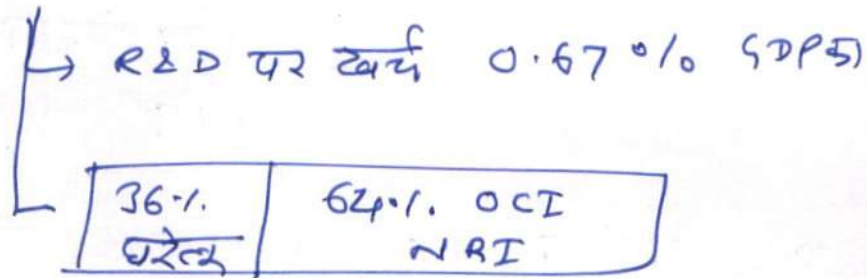 → R&D पर खर्च 0.67% GDP का
36% घरेलू
64% OCI NRI